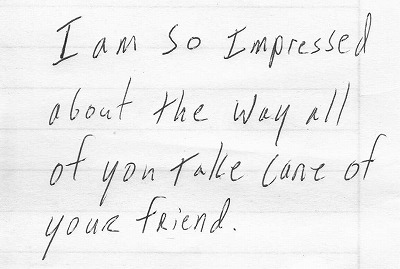 I am so Impressed
about the way all
of you take care of
your friend.